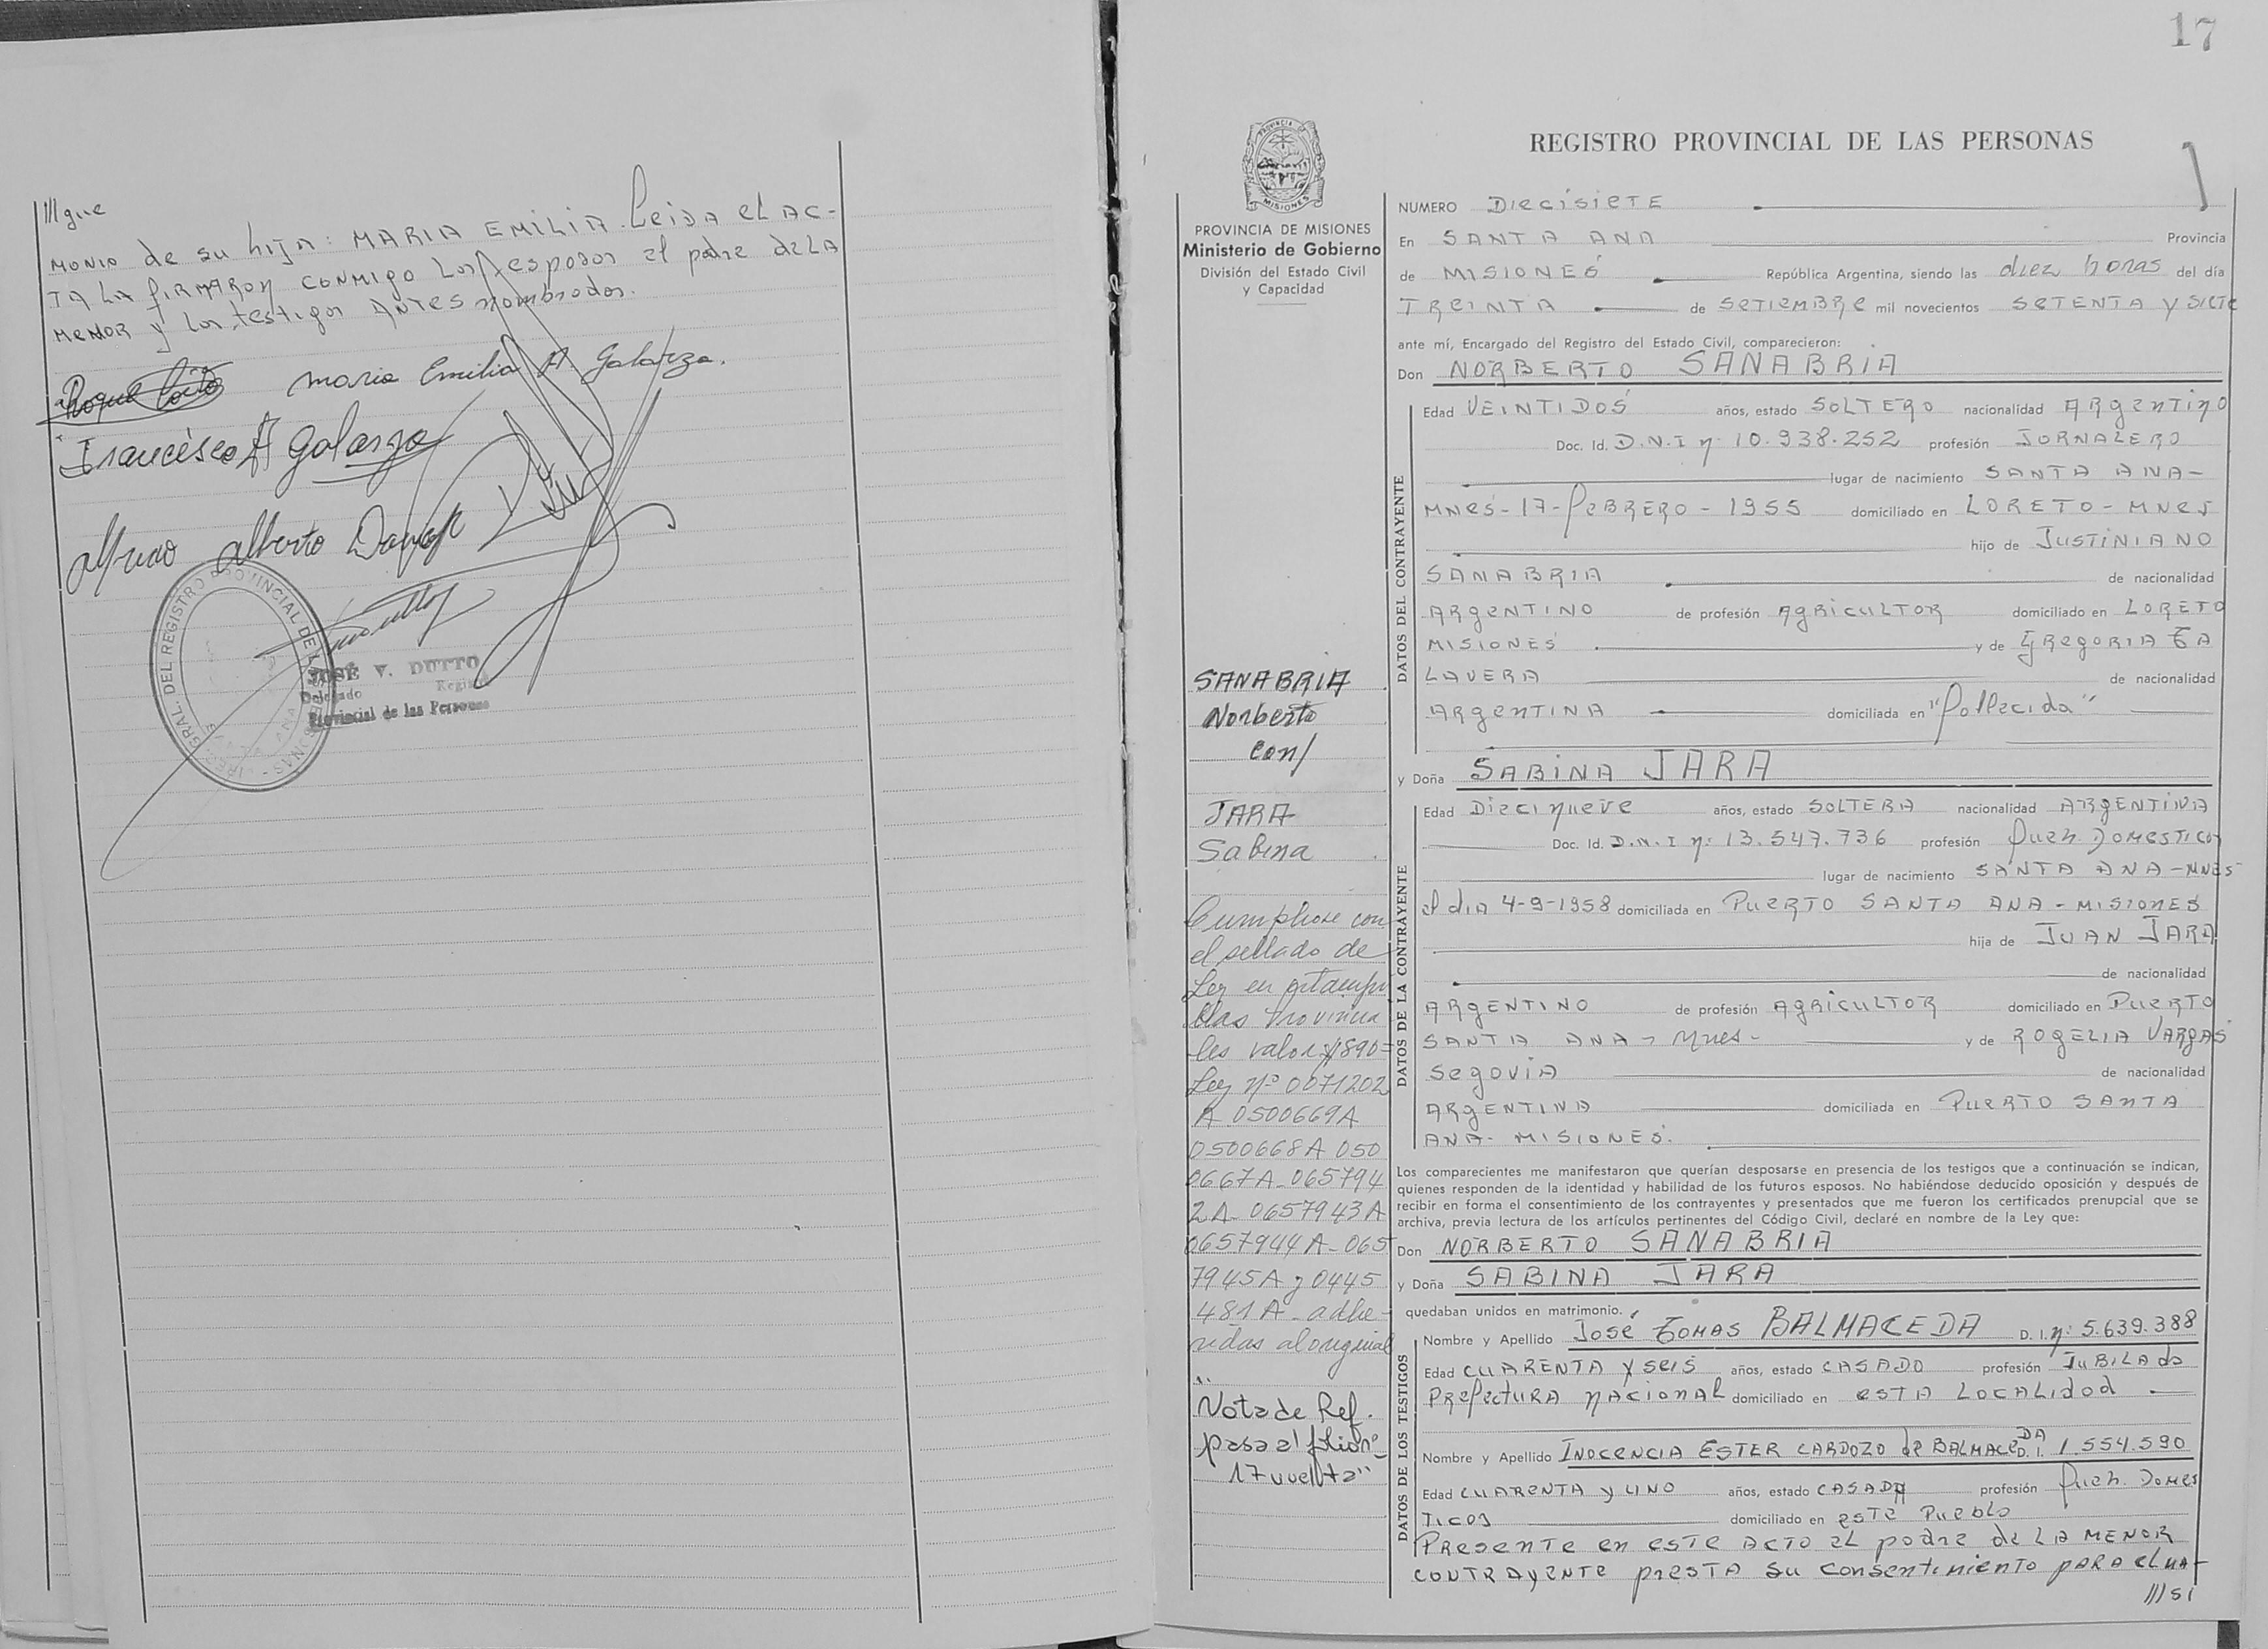 ///gue
MONIO de su hija: MARIA EMILIA. Leida el AC-
TA LA fIRMARON CONMIGO Los esposos el padre de LA
MENOR y los testigos ANTES nombrados.
Roque
Maria Emilia A Galarza.
Francisco A Galarza
Alberto
JOSÉ V. DUTTO
Delegado Registro
Provincial de las Personas
17
REGISTRO PROVINCIAL DE LAS PERSONAS
PROVINCIA DE MISIONES
Ministerio de Gobierno
División del Estado Civil
y Capacidad
SANABRIA
Norberto
con/
JARA
Sabina
Cumpliose con
el sellado de
Ley en estampi
llas Provincia
les valor $1890=
Ley nº 0071202
A 0500669A
0500668A 050
0667A-065794
2A-0657943A
0657944A-065
7945A y 0445
481A-adhe-
ridas al original
Nota de Ref.
pasa al folio nº
17 vuelta"
NUMERO DIECISIETE
En SANTA ANA Provincia
de MISIONES República Argentina, siendo las diez horas del día
TREINTA de SETIEMBRE mil novecientos SETENTA Y SIETE
ante mí, Encargado del Registro del Estado Civil, comparecieron:
Don NORBERTO SANABRIA
DATOS DEL CONTRAYENTE
Edad VEINTIDOS años, estado SOLTERO nacionalidad ARgENTINO
Doc. Id. D.N.I nº 10.938.252 profesión JORNALERO
lugar de nacimiento SANTA ANA-
MNES-17-fEBRERO-1955 domiciliado en LORETO-MNES
hijo de JUSTINIANO
SANABRIA de nacionalidad
ARgENTINO de profesión AgRICULTOR domiciliado en LORETO
MISIONES y de GREgORIA TA
LAVERA de nacionalidad
ARgENTINA domiciliada en "fallecida"
y Doña SABINA JARA
DATOS DE LA CONTRAYENTE
Edad Diecinueve años, estado SOLTERA nacionalidad ARgENTINA
Doc. Id. D.N.I nº: 13.547.736 profesión Queh. DOMESTICOS
lugar de nacimiento SANTA ANA-MNES
el dIA 4-9-1958 domiciliada en PUERTO SANTA ANA-MISIONES
hija de JUAN JARA
de nacionalidad
ARgENTINO de profesión AgRICULTOR domiciliado en PUERTO
SANTA ANA-Mnes- y de ROgELIA VARgAS
SEgOVIA de nacionalidad
ARgENTINA domiciliada en PUERTO SANTA
ANA-MISIONES.
Los comparecientes me manifestaron que querían desposarse en presencia de los testigos que a continuación se indican,
quienes responden de la identidad y habilidad de los futuros esposos. No habiéndose deducido oposición y después de
recibir en forma el consentimiento de los contrayentes y presentados que me fueron los certificados prenupcial que se
archiva, previa lectura de los artículos pertinentes del Código Civil, declaré en nombre de la Ley que:
Don NORBERTO SANABRIA
y Doña SABINA JARA
quedaban unidos en matrimonio.
DATOS DE LOS TESTIGOS
Nombre y Apellido José TOMAS BALMACEDA D. I. nº: 5.639.388
Edad CUARENTA Y SEIS años, estado CASADO profesión JUBILAdo
PREfectURA NACIONAL domiciliado en ESTA LOCALIdad
Nombre y Apellido INOCENCIA ESTER CARDOZO de BALMACEDA D. I. 1.554.590
Edad CUARENTA y UNO años, estado CASADA profesión Queh. DOMES
TICOS domiciliado en ESTE PUEBLO
PRESENTE en ESTE ACTO EL padre de LA MENOR
CONTRAYENTE pRESTA su consentimiento PARA el MA-
///si